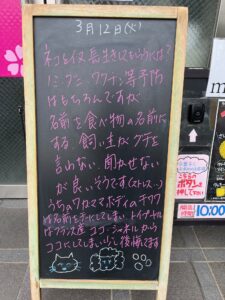 3月12日(火)
ネコを(犬)長生きしてもらうには?
ノミ・ダニ、ワクチン等予防
はもちろんですが
名前を食べ物の名前に
する、飼い主がグチを
言わない 聞かせない
が良いそうです(ストレス…)
うちのワガママボディのチワワ
は名前をチーにしてしまい トイプードル
はフランス産 ココ・シャネルから
ココにしてしまい 後悔です
こちらの
ボタンを
押して下さい
開店時間
10:00
m